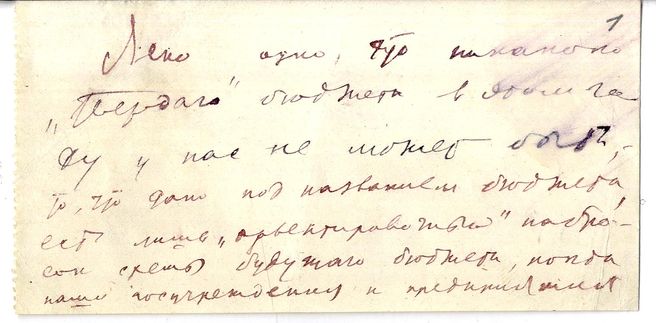 1
Ясно одно, что никакого
„Твердаго" бюджета в этом го
ду у нас не может быть,
то, что дано под названием бюджета,
есть лишь „ориентировочный" набро-
сок сметы будущаго бюджета, когда
наши госучреждения и предприятия